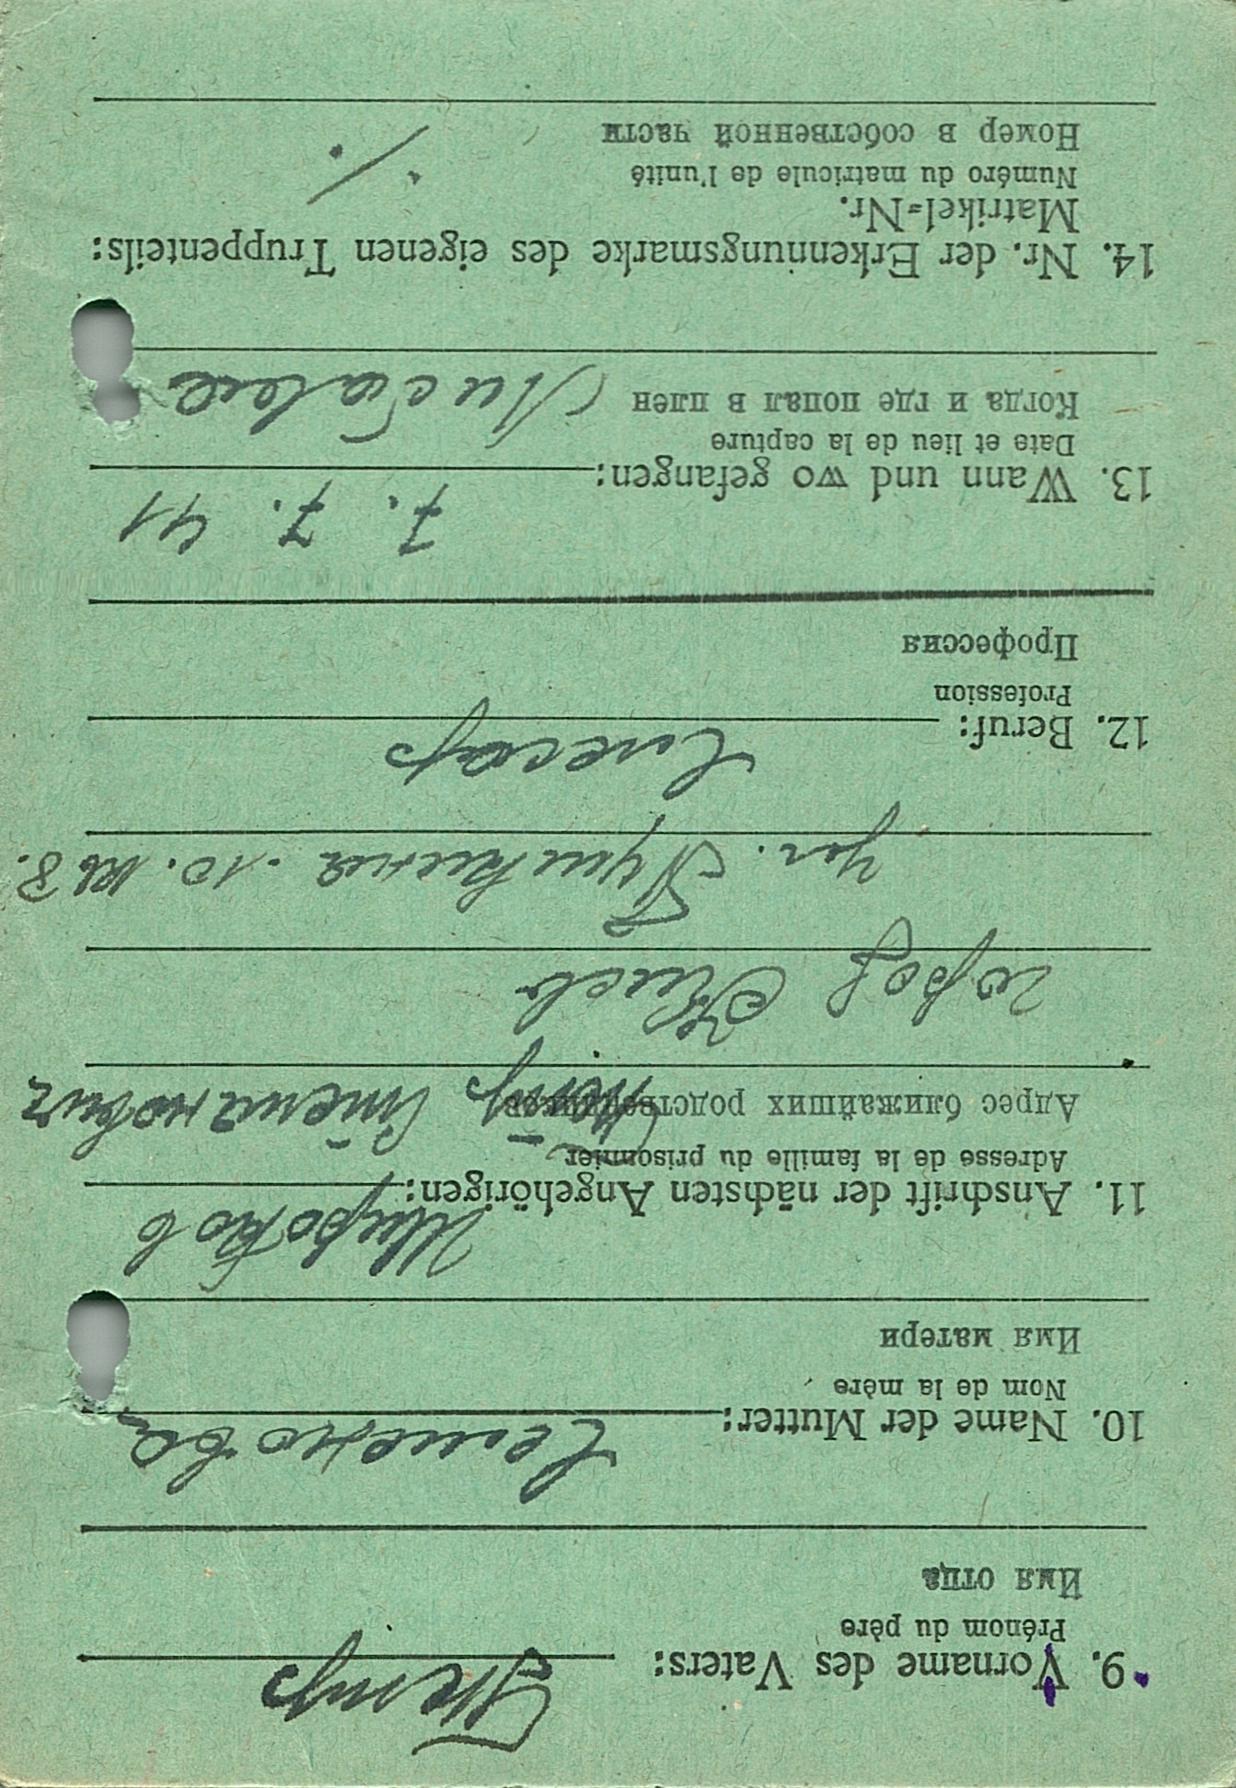 9. Vorname des Vaters: Петр
Prénom du père
Имя отца
10. Name der Mutter: Семенова
Nom de la mère
Имя матери
11. Anschrift der nächsten Angehörigen: Широков
Adresse de la famille du prisonnier
Адрес ближайших родственников Петр Степанович
город Киев
ул. Пушкина. 10. кв 8.
12. Beruf: Слесарь
Profession
Профессия
13. Wann und wo gefangen: 7. 7. 41
Date et lieu de la capture
Когда и где попал в плен
14. Nr. der Erkennungsmarke des eigenen Truppenteils:
Matrikel=Nr.
Numéro du matricule de l'unité
Номер в собственной части ./.